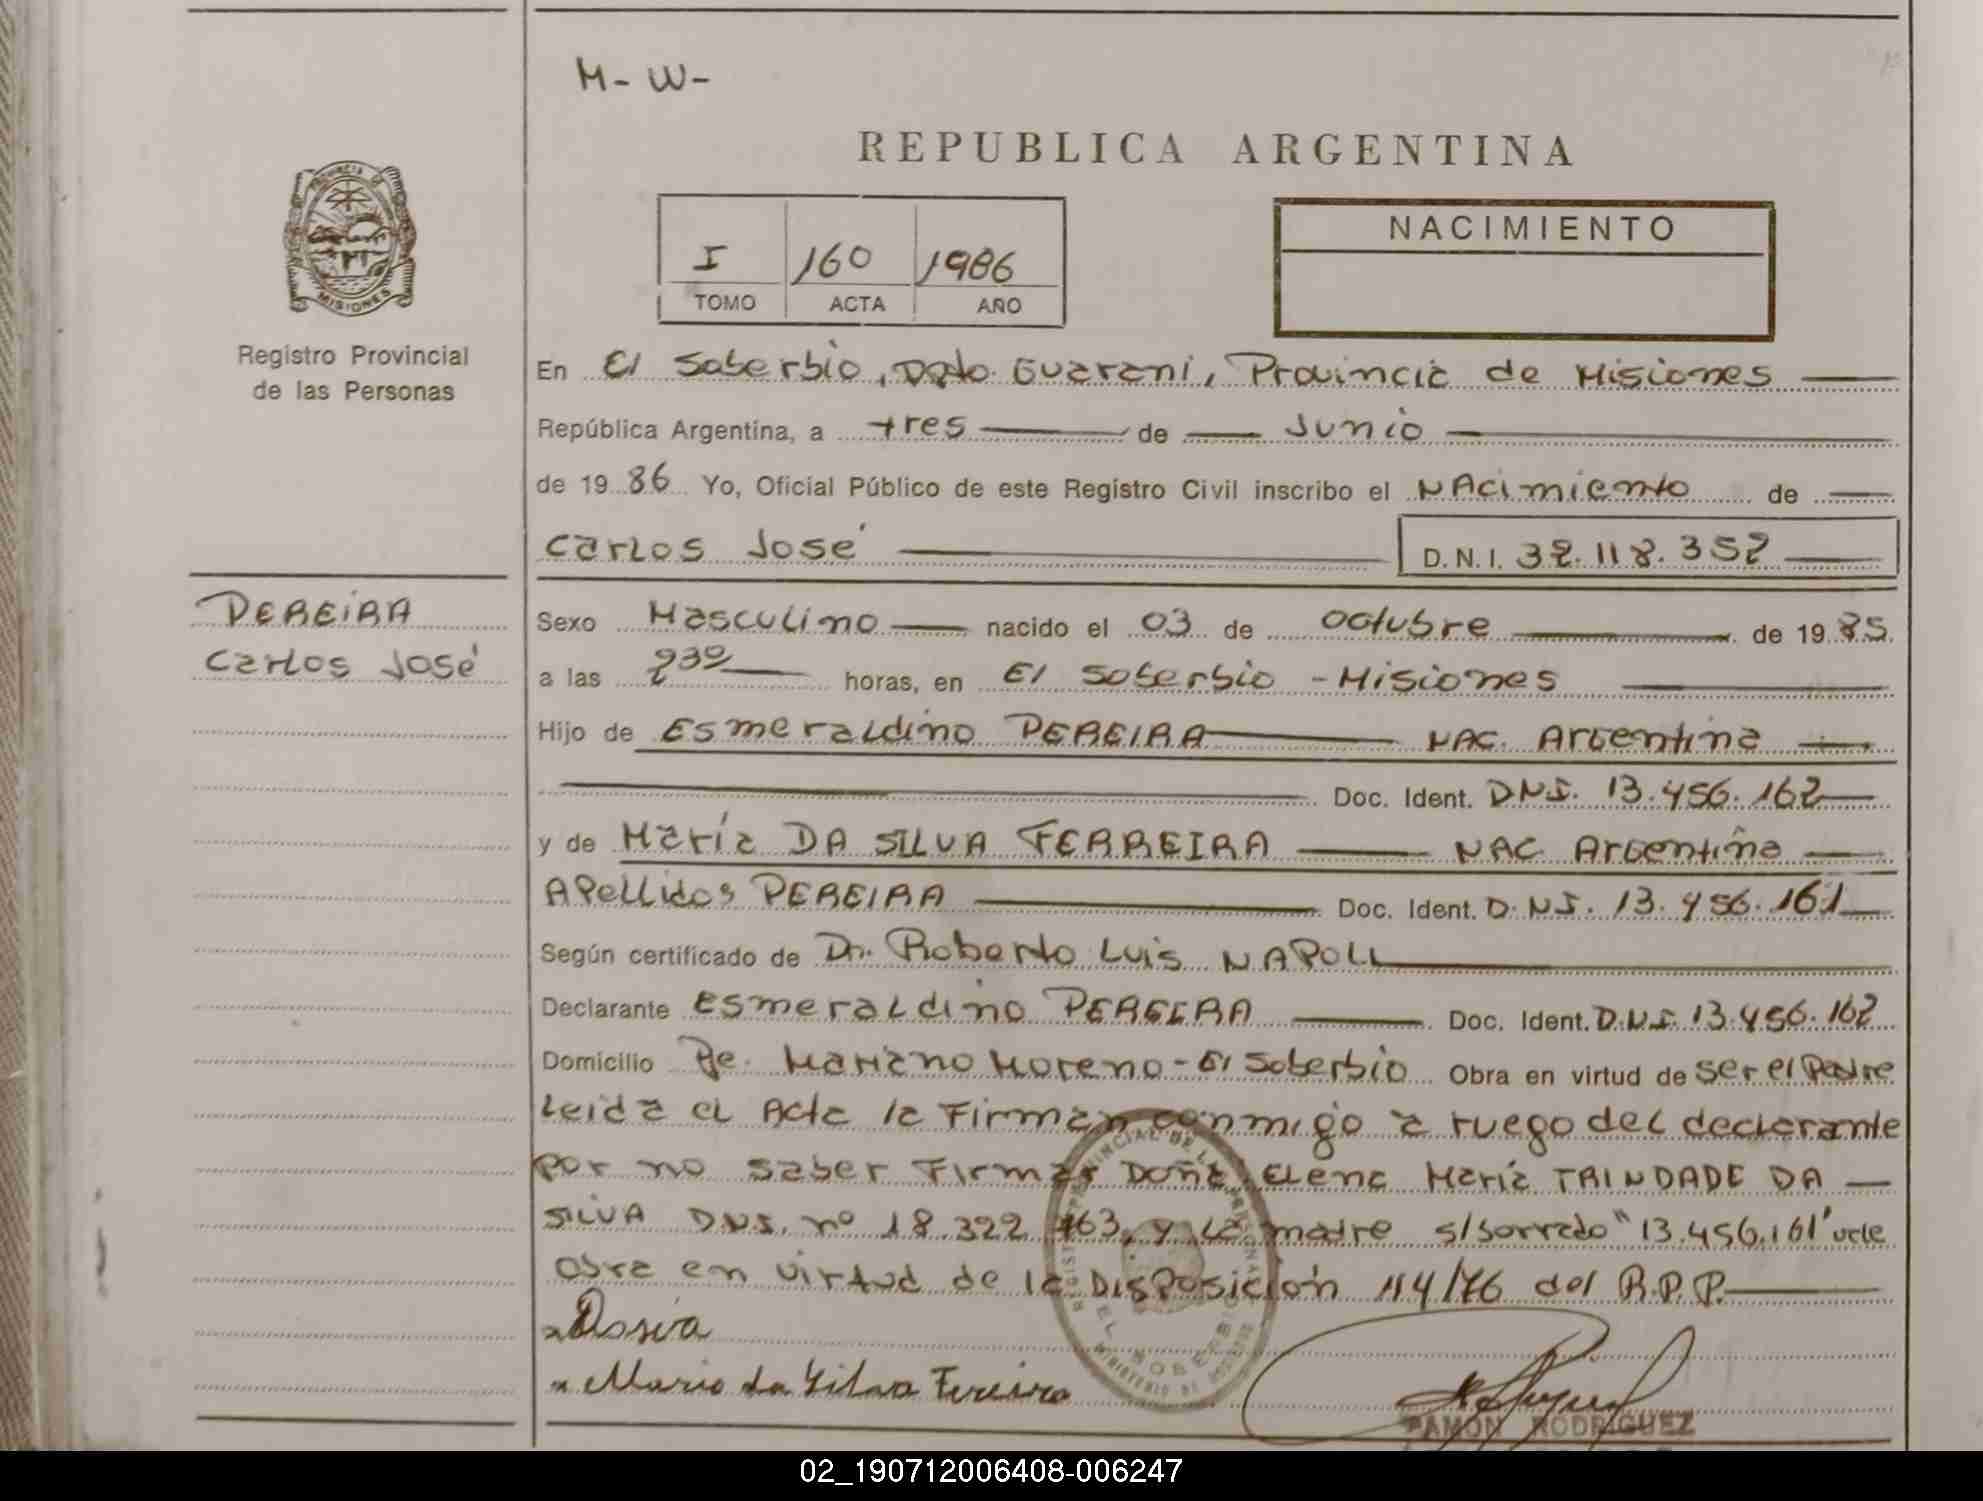 M- W-
REPUBLICA ARGENTINA
PROVINCIA DE
MISIONES
I 160 1986
TOMO ACTA AÑO
NACIMIENTO
Registro Provincial
de las Personas
En El Soberbio, Dpto. Guarani, Provincia de Misiones
República Argentina, a tres de Junio
de 1986 Yo, Oficial Público de este Registro Civil inscribo el NAcimiento de
Carlos José D.N.I. 32.118.352
PEREIRA
Carlos José
Sexo Masculino nacido el 03 de octubre de 1985
a las 2³⁰ horas, en El Soberbio - Misiones
Hijo de Esmeraldino PEREIRA NAC. Argentina
Doc. Ident. DNI. 13.456.162
y de María DA SILVA FERREIRA NAC Argentina
Apellidos PEREIRA Doc. Ident. D.NI. 13.456.161
Según certificado de Dr. Roberto Luis NAPOLI
Declarante Esmeraldino PEREIRA Doc. Ident. D.N.I. 13.456.162
Domicilio Pje. Mariano Moreno - El Soberbio Obra en virtud de ser el Padre
Leida el Acta la Firman conmigo a ruego del declarante
por no saber Firmar Doña Elena María TRINDADE DA
SILVA DNI. nº 18.322.463, y la madre s/borrado "13.456.161" vale
obra en virtud de la Disposición 114/76 del R.P.P.
Maria da Silva Fereira
EL SOBERBIO
RAMON RODRIGUEZ
02_190712006408-006247